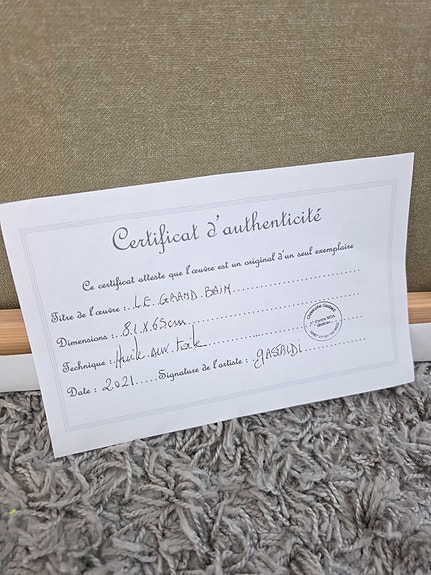 Certificat d'authenticité
Ce certificat atteste que l'œuvre est un original d'un seul exemplaire
Titre de l'œuvre : LE GRAND BAIN
Dimensions : 81 X 65 cm
Technique : Huile sur toile
Date : 2021 Signature de l'artiste : GASTALDI